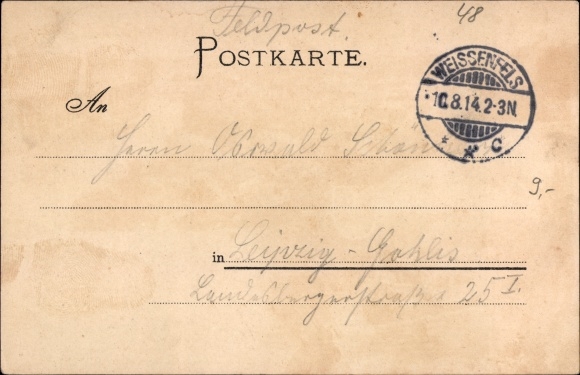 Feldpost.
48
POSTKARTE.
WEISSENFELS
10.8.14.2-3N.
* * C
An
Herrn Oswald
9,-
in Leipzig-Gohlis
Landsbergerstraße 25 I.